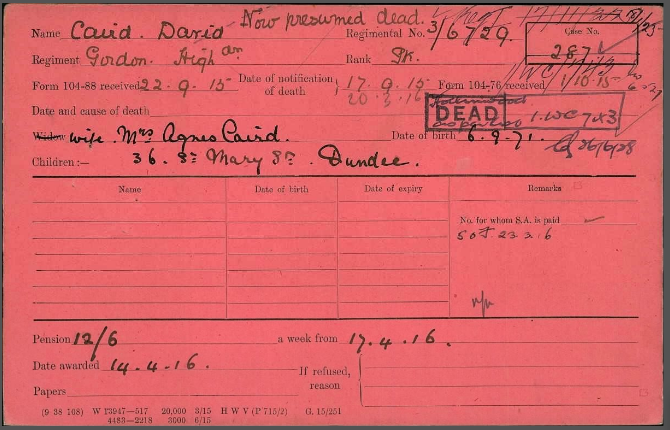 Now presumed dead.
Name Caird. David Regimental No. 3/6729. Case No.
287
Regiment Gordon. High drs Rank Pte.
Form 104-88 received 22.9.15 Date of notification of death 17.9.15 Form 104-76 received 1.10.15
20.3.16
Date and cause of death DEAD
Widow wife. Mrs Agnes Caird. Date of birth 6.9.71.
26/6/28
Children:— 36. St Mary St. Dundee.
Name Date of birth Date of expiry Remarks
No. for whom S.A. is paid
23.3.16
Pension 12/6 a week from 17.4.16.
Date awarded 14.4.16. If refused,
reason
Papers
(9 38 108) W 13947—517 20,000 3/15 H W V (P 715/2) G. 15/251
4483—2218 3000 6/15